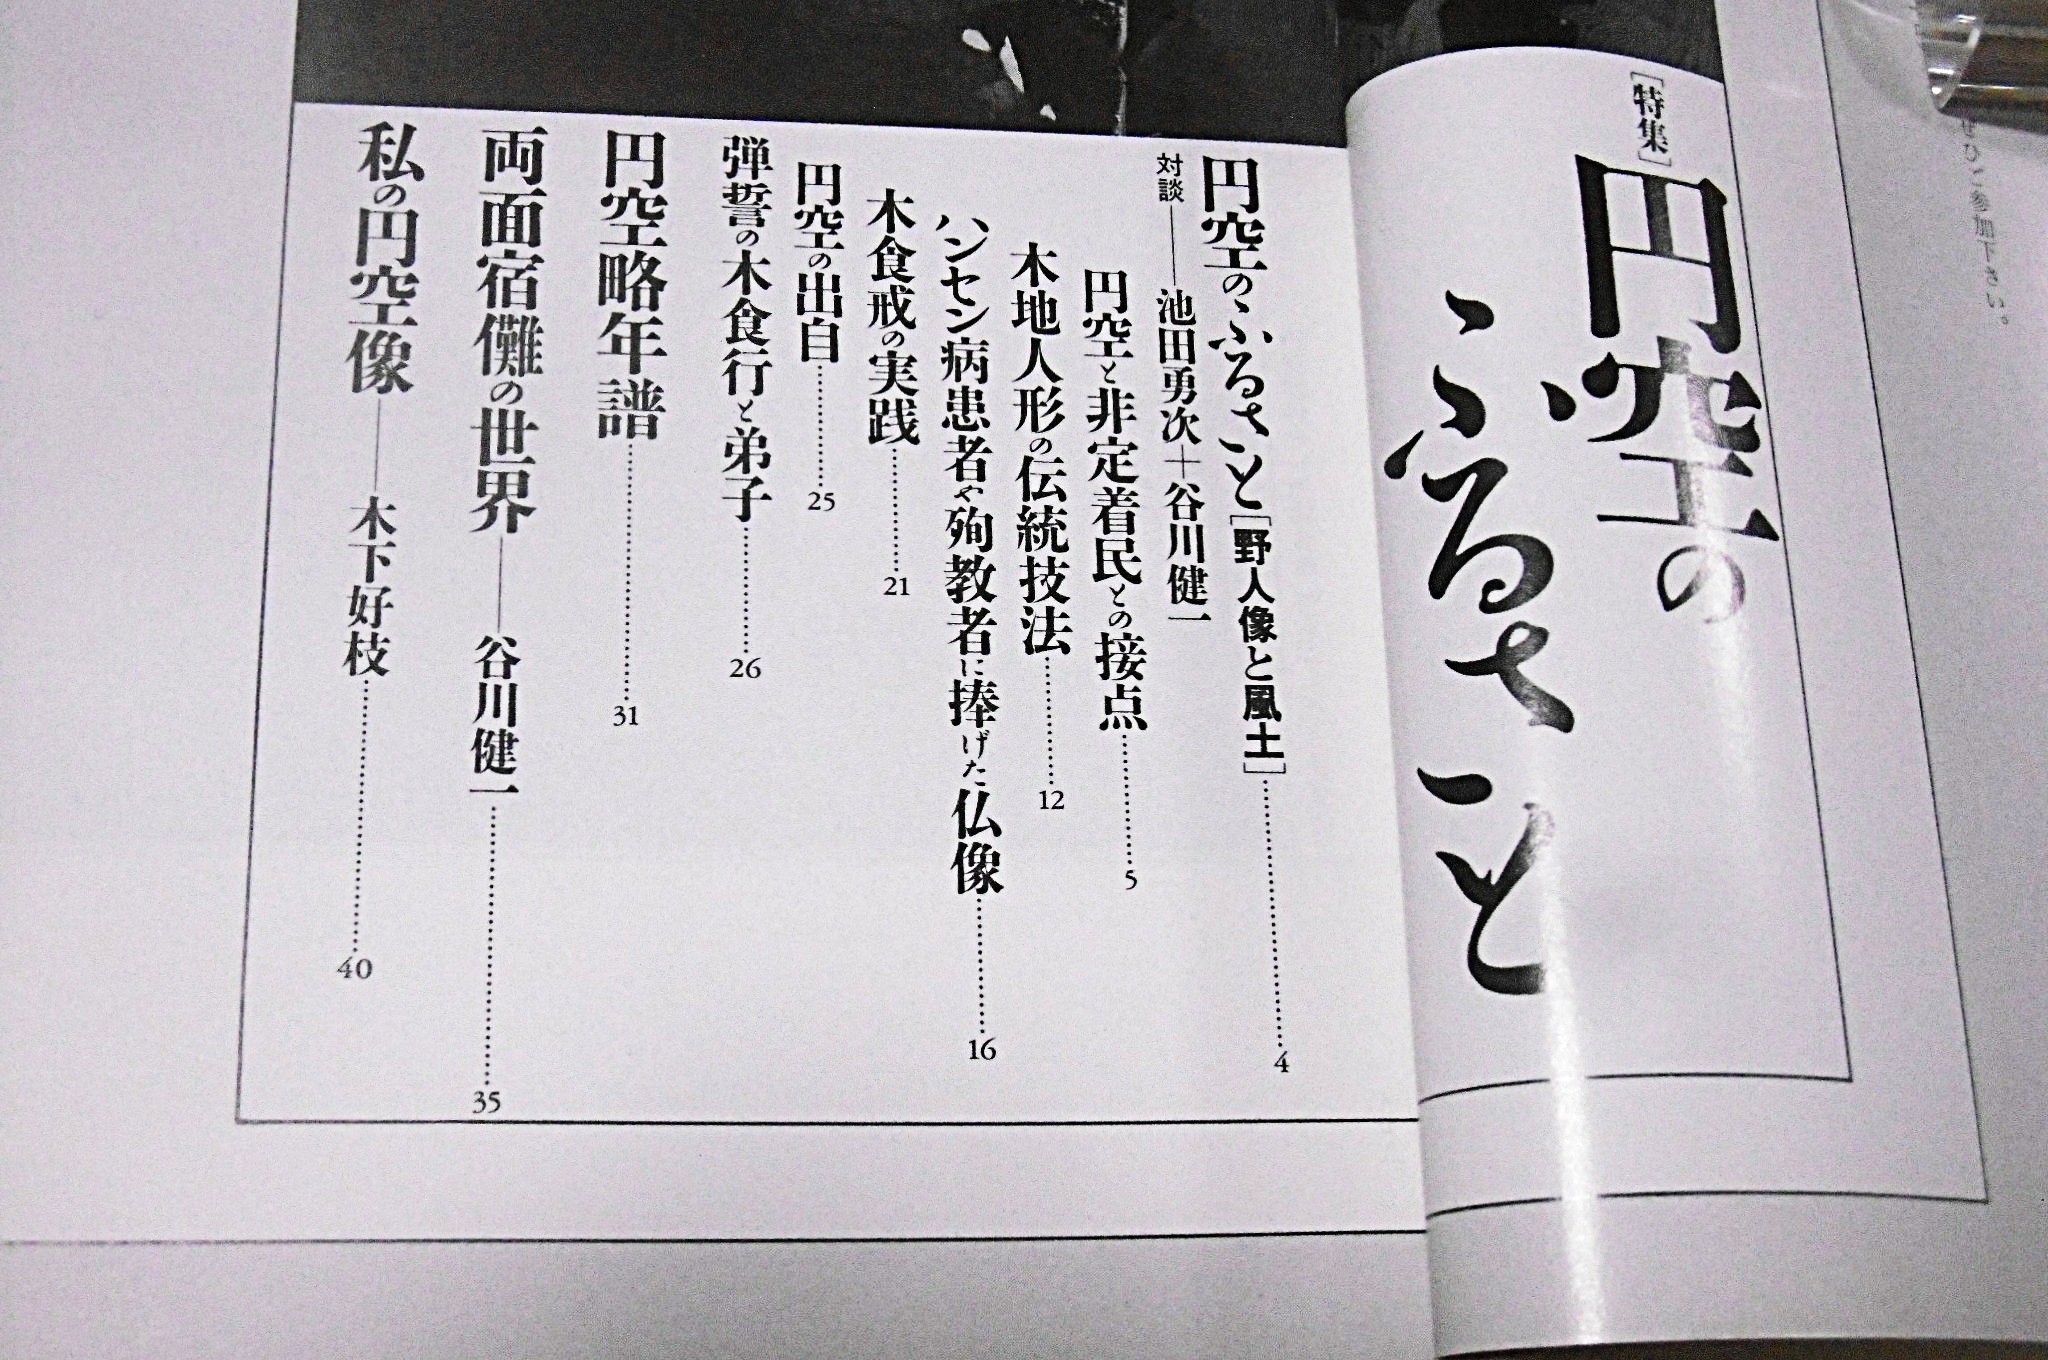 ぜひご参加下さい。
[特集]
円空の
ふるさと
円空のふるさと[野人像と風土]……4
対談――池田勇次+谷川健一
円空と非定着民との接点……5
木地人形の伝統技法……12
ハンセン病患者や殉教者に捧げた仏像……16
木食戒の実践……21
円空の出自……25
弾誓の木食行と弟子……26
円空略年譜……31
両面宿儺の世界――谷川健一……35
私の円空像――木下好枝……40